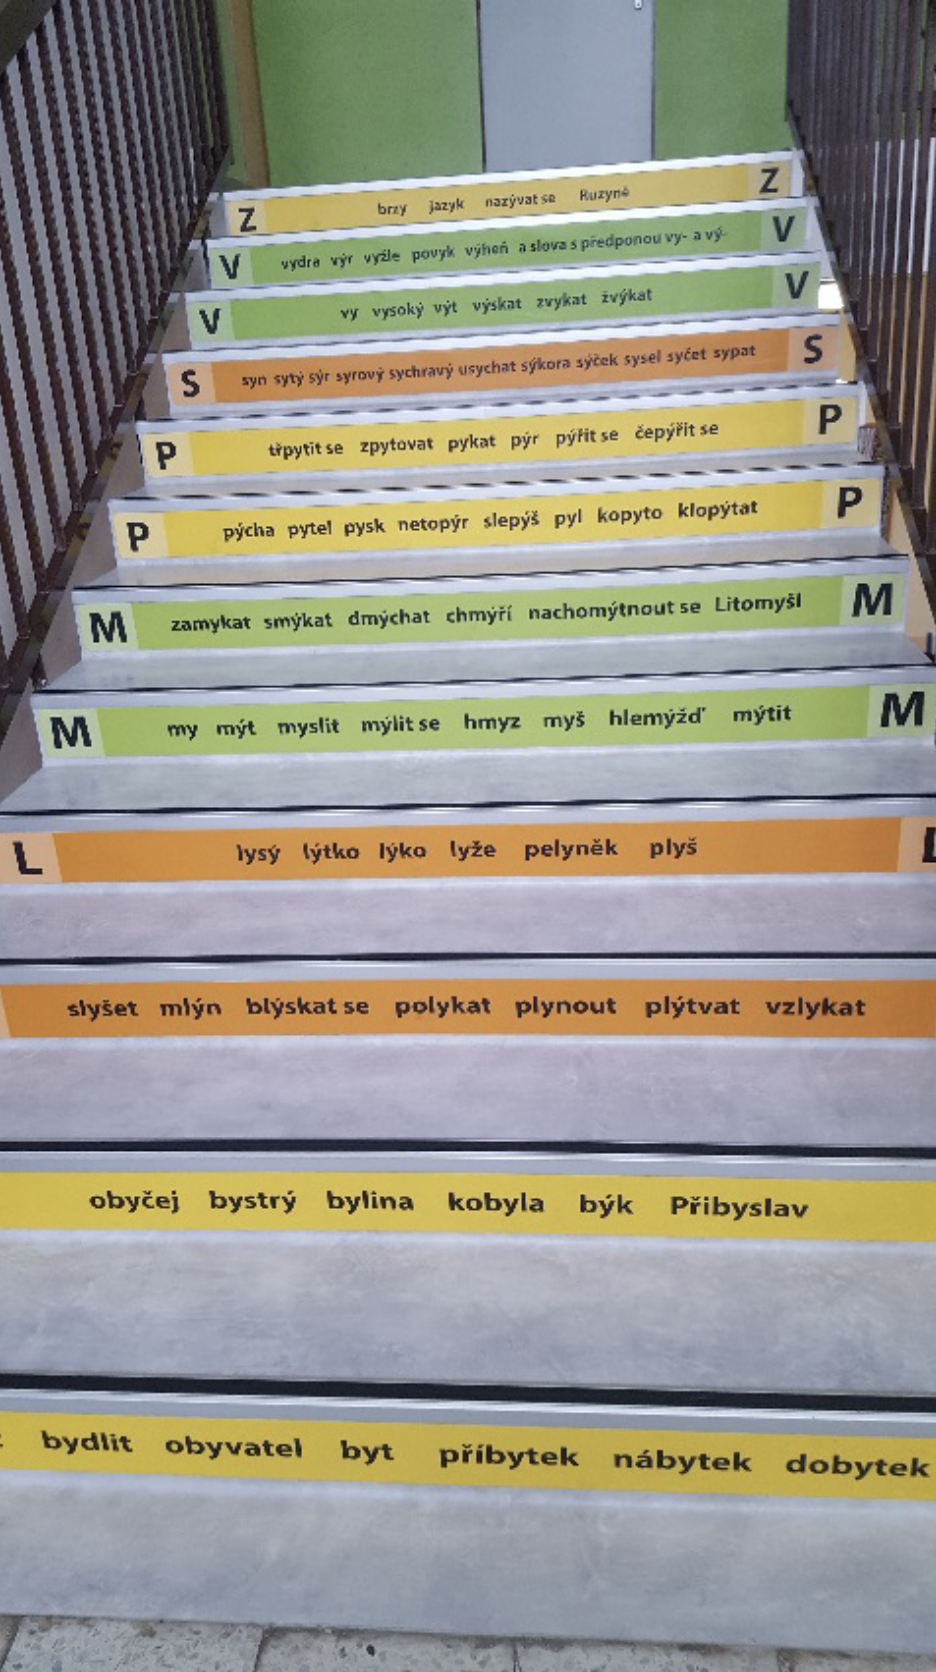 Z brzy jazyk nazývat se Ruzyně Z
V vydra výr vyžle povyk výheň a slova s předponou vy- a vý- V
V vy vysoký výt výskat zvykat žvýkat V
S syn sytý sýr syrový sychravý usychat sýkora sýček sysel syčet sypat S
P třpytit se zpytovat pykat pýr pýřit se čepýřit se P
P pýcha pytel pysk netopýr slepýš pyl kopyto klopýtat P
M zamykat smýkat dmýchat chmýří nachomýtnout se Litomyšl M
M my mýt myslit mýlit se hmyz myš hlemýžď mýtit M
L lysý lýtko lýko lyže pelyněk plyš L
slyšet mlýn blýskat se polykat plynout plýtvat vzlykat
obyčej bystrý bylina kobyla býk Přibyslav
bydlit obyvatel byt příbytek nábytek dobytek